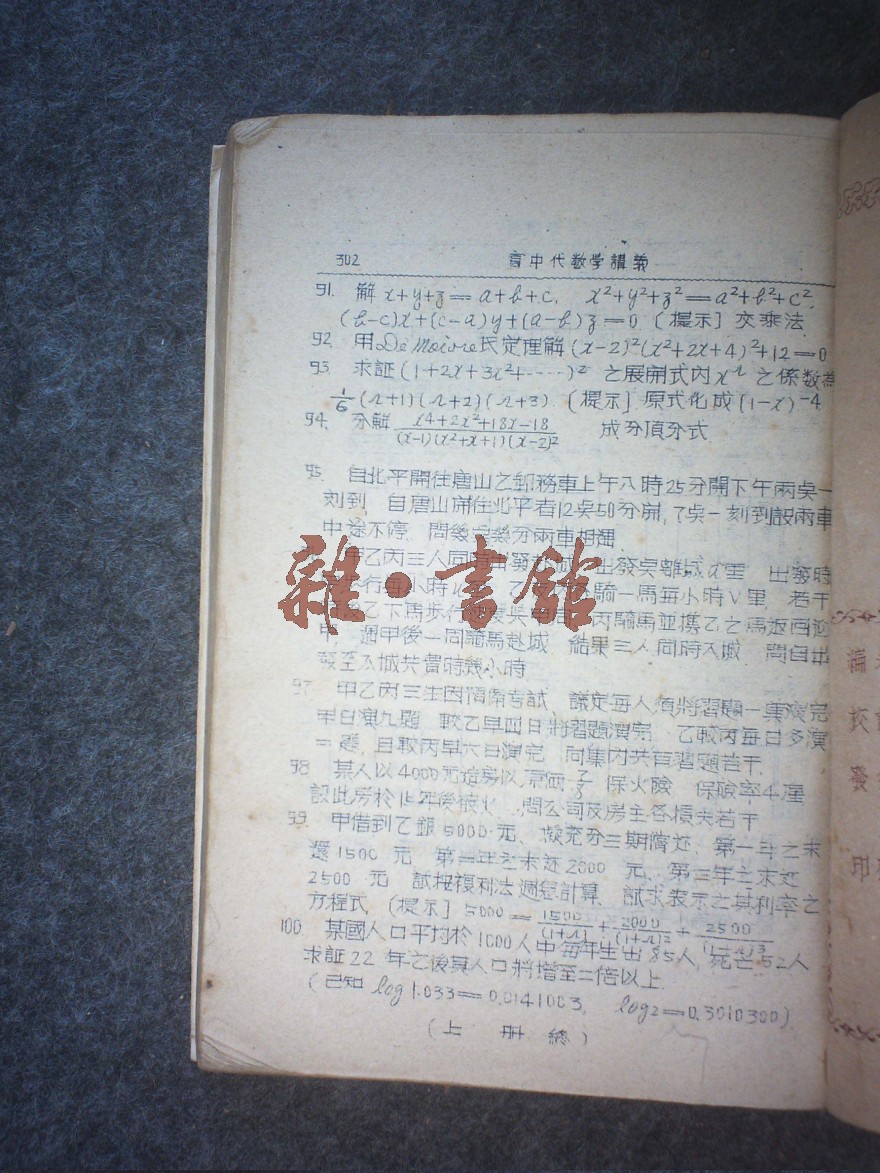 302 高中代数学講義
91. 解 x+y+z=a+b+c, x²+y²+z²=a²+b²+c²,
(b-c)x+(c-a)y+(a-b)z=0 [提示] 交乘法
92. 用De Moivre氏定理解 (x-2)²(x²+2x+4)²+12=0
93. 求証(1+2x+3x²+-----)² 之展開式內xʳ之係数為
1/6(r+1)(r+2)(r+3) [提示] 原式化成(1-x)⁻⁴
94. 分解 (x4+2x²+18x-18)/((x-1)(x²+x+1)(x-2)²) 成分項分式
95. 自北平開往唐山之郵務車上午八時25分開下午兩点一
刻到 自唐山開往北平者12点50分開,7点一刻到設兩車
中途不停, 問幾点幾分兩車相遇
甲乙丙三人同 出發 出發点離城d里 出發時
行每小時 騎一馬每小時V里, 若干
乙下馬步行 丙騎馬並携乙之馬返回迎
甲, 遇甲後一同騎馬赴城 結果三人同時入城 問自出
發至入城共費時幾小時
97. 甲乙丙三生因預備考試、議定每人須將習題一集演完
甲日演九題 較乙早四日將習題演完 乙較丙每日多演
二題, 且較丙早六日演完 問集內共有習題若干.
98. 某人以4000元造房以原価 保火險 保險率4厘
設此房於 年後被火, 問公司及房主各損失若干
99. 甲借到乙銀5000元、擬允分三期償还、第一年之末
還1500元 第二年之末还2000元、第三年之末还
2500元 試按複利法 計算 試求表示之其利率之
方程式 (提示) 5000=1500/(1+r)+2000/(1+r)²+2500/(1+r)³
100. 某國人口平均於1000人中每年生出85人,死亡52人
求証22年之後其人口將增至二倍以上.
(已知 log 1.033=0.0141003, log2=0.3010300)
(上 册 終)
雜·書館
印
發
校